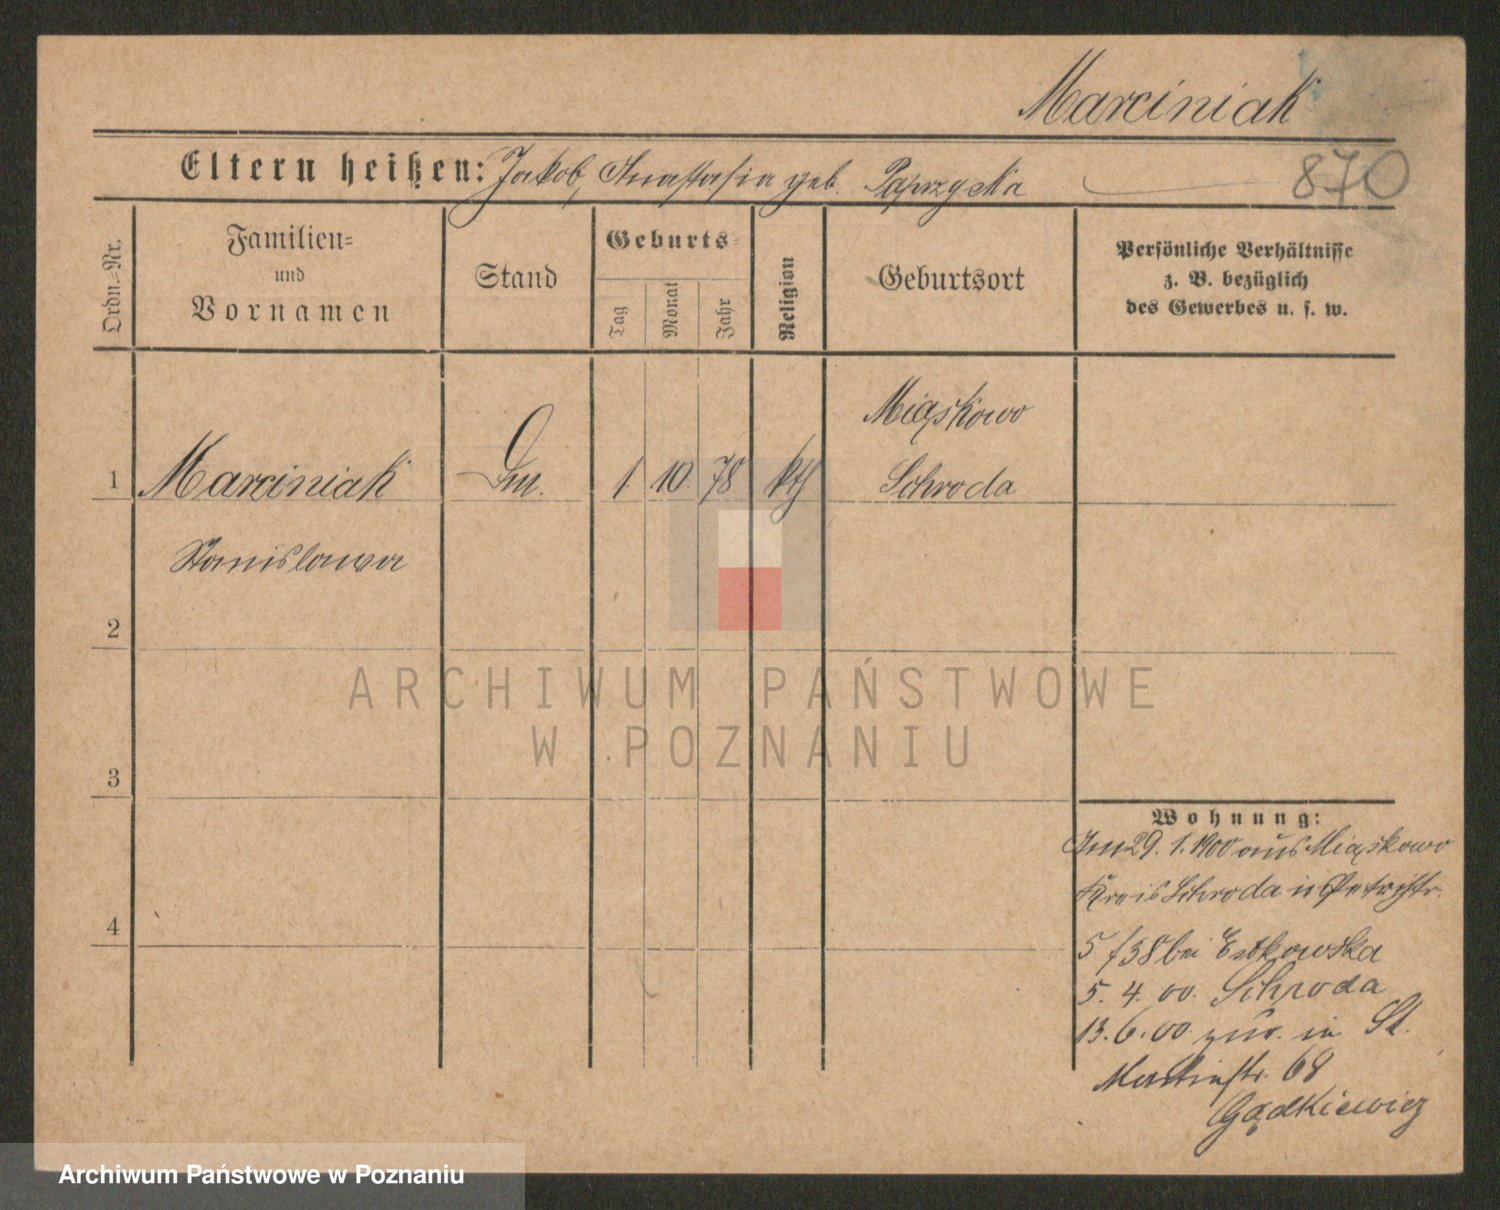 Marciniak
870
Eltern heißen: Jakob, Anastasia geb. Paprzycka
Ordn.=Nr.
Familien=
und
Vornamen
Stand
Geburts=
Tag
Monat
Jahr
Religion
Geburtsort
Persönliche Verhältnisse
z. B. bezüglich
des Gewerbes u. s. w.
Miąskowo
1 Marciniak 1. 10. 78 kth Schroda
Stanislawa
2
ARCHIWUM PAŃSTWOWE
W POZNANIU
3
Wohnung:
29. 1. 1900 aus Miąskowo
Kreis Schroda in Petristr.
5 /38 bei
5. 4. 00. Schroda
4
13. 6. 00. zur. in St.
Martinstr. 68
Gądkiewicz
Archiwum Państwowe w Poznaniu